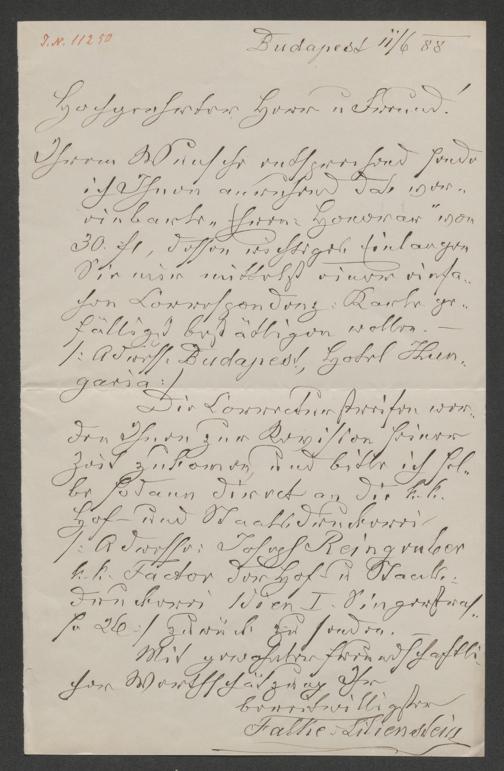 I.N. 11290
Budapest 11/6 88
Hochgeehrter Herr u Freund!
Ihrem Wunsche entsprechend sende
ich Ihnen anruhend das ver-
einbarte „Ehren: Honorar" von
30. fl, dessen richtiges Einlangen
Sie mir mittelst einer einfa-
chen Correspondenz: Karte ge-
fälligst bestättigen wollen. —
/: Adresse Budapest, Hotel Hun-
garia :/
Die Correcturstreifen wer-
den Ihnen zur Revision seiner
Zeit zukomen, und bitte ich sel-
be sodann direct an die k.k.
Hof- und Staatsdruckerei
/: Adresse: Joseph Reingruber
k.k. Factor der Hof- u Staats-
druckerei Wien I. Singerstras-
se 26 :/ zurück zu senden. —
Mit gewohnter freundschaftli-
cher Werthschätzung Ihr
bereitwilligster
Falke-Lilienstein